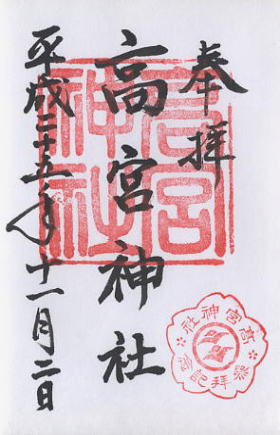 奉拝
高宮神社
平成二十五年十一月二日
高宮神社
高宮神社
参拝記念